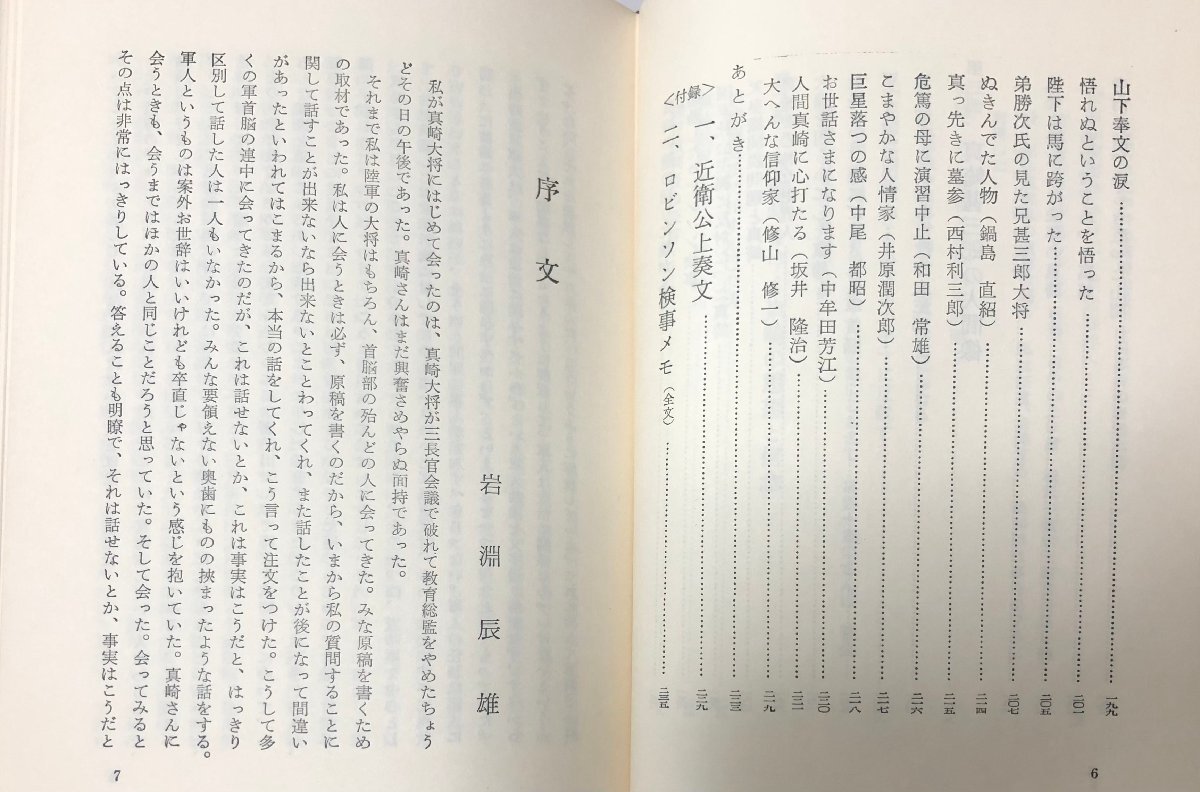 山下奉文の涙……一九九
悟れぬということを悟った……二〇一
陛下は馬に跨がった……二〇五
弟勝次氏の見た兄甚三郎大将……二〇七
ぬきんでた人物（鍋島　直紹）……二一四
真っ先きに墓参（西村利三郎）……二一五
危篤の母に演習中止（和田　常雄）……二一六
こまやかな人情家（井原潤次郎）……二一七
巨星落つの感（中尾　都昭）……二一八
お世話さまになります（中牟田芳江）……二二〇
人間真崎に心打たる（坂井　隆治）……二二一
大へんな信仰家（修山　修一）……二一九
あとがき……二二三
＜付録＞
一、近衛公上奏文……二二九
二、ロビンソン検事メモ（全文）……二三五
6
序文
岩淵辰雄
私が真崎大将にはじめて会ったのは、真崎大将が三長官会議で破れて教育総監をやめたちょう
どその日の午後であった。真崎さんはまだ興奮さめやらぬ面持であった。
それまで私は陸軍の大将はもちろん、首脳部の殆んどの人に会ってきた。みな原稿を書くため
の取材であった。私は人に会うときは必ず、原稿を書くのだから、いまから私の質問することに
関して話すことが出来ないなら出来ないとことわってくれ、また話したことが後になって間違い
があったといわれてはこまるから、本当の話をしてくれ、こう言って注文をつけた。こうして多
くの軍首脳の連中に会ってきたのだが、これは話せないとか、これは事実はこうだと、はっきり
区別して話した人は一人もいなかった。みんな要領えない奥歯にものの挟まったような話をする。
軍人というものは案外お世辞はいいけれども卒直じゃないという感じを抱いていた。真崎さんに
会うときも、会うまではほかの人と同じことだろうと思っていた。そして会った。会ってみると
その点は非常にはっきりしている。答えることも明瞭で、それは話せないとか、事実はこうだと
7